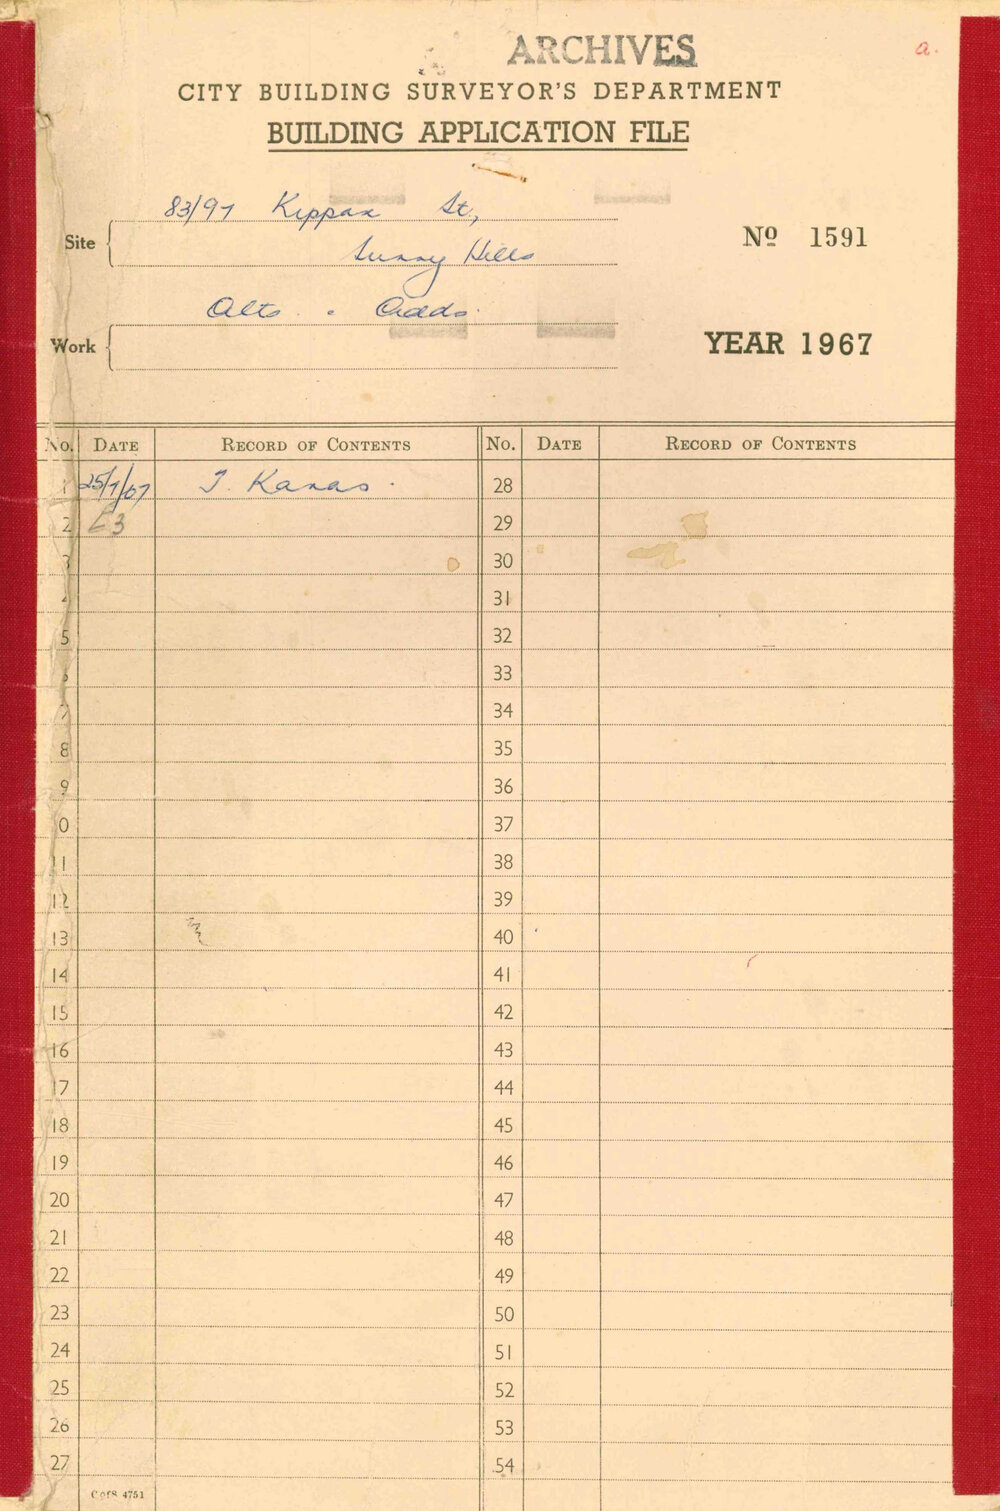 ARCHIVES
a.
CITY BUILDING SURVEYOR'S DEPARTMENT
BUILDING APPLICATION FILE
83/97 Kippax St,
Site
Surry Hills
Nº 1591
Alts. & Adds.
Work
YEAR 1967
No. DATE RECORD OF CONTENTS No. DATE RECORD OF CONTENTS
1 25/7/67 J. Kanas. 28
2 29
3 30
4 31
5 32
33
7 34
8 35
9 36
0 37
11 38
12 39
13 40
14 41
15 42
16 43
17 44
18 45
19 46
20 47
21 48
22 49
23 50
24 51
25 52
26 53
27 54
C of S 4751